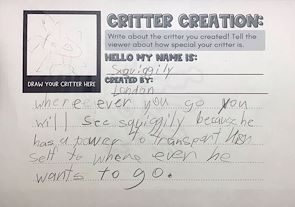 CRITTER CREATION:
Write about the critter you created! Tell the
viewer about how special your critter is.
HELLO MY NAME IS:
Squiggily
CREATED BY:
London
DRAW YOUR CRITTER HERE
where ever you go you
will see squiggily because he
has a power to transport him
self to where ever he
wants to go.